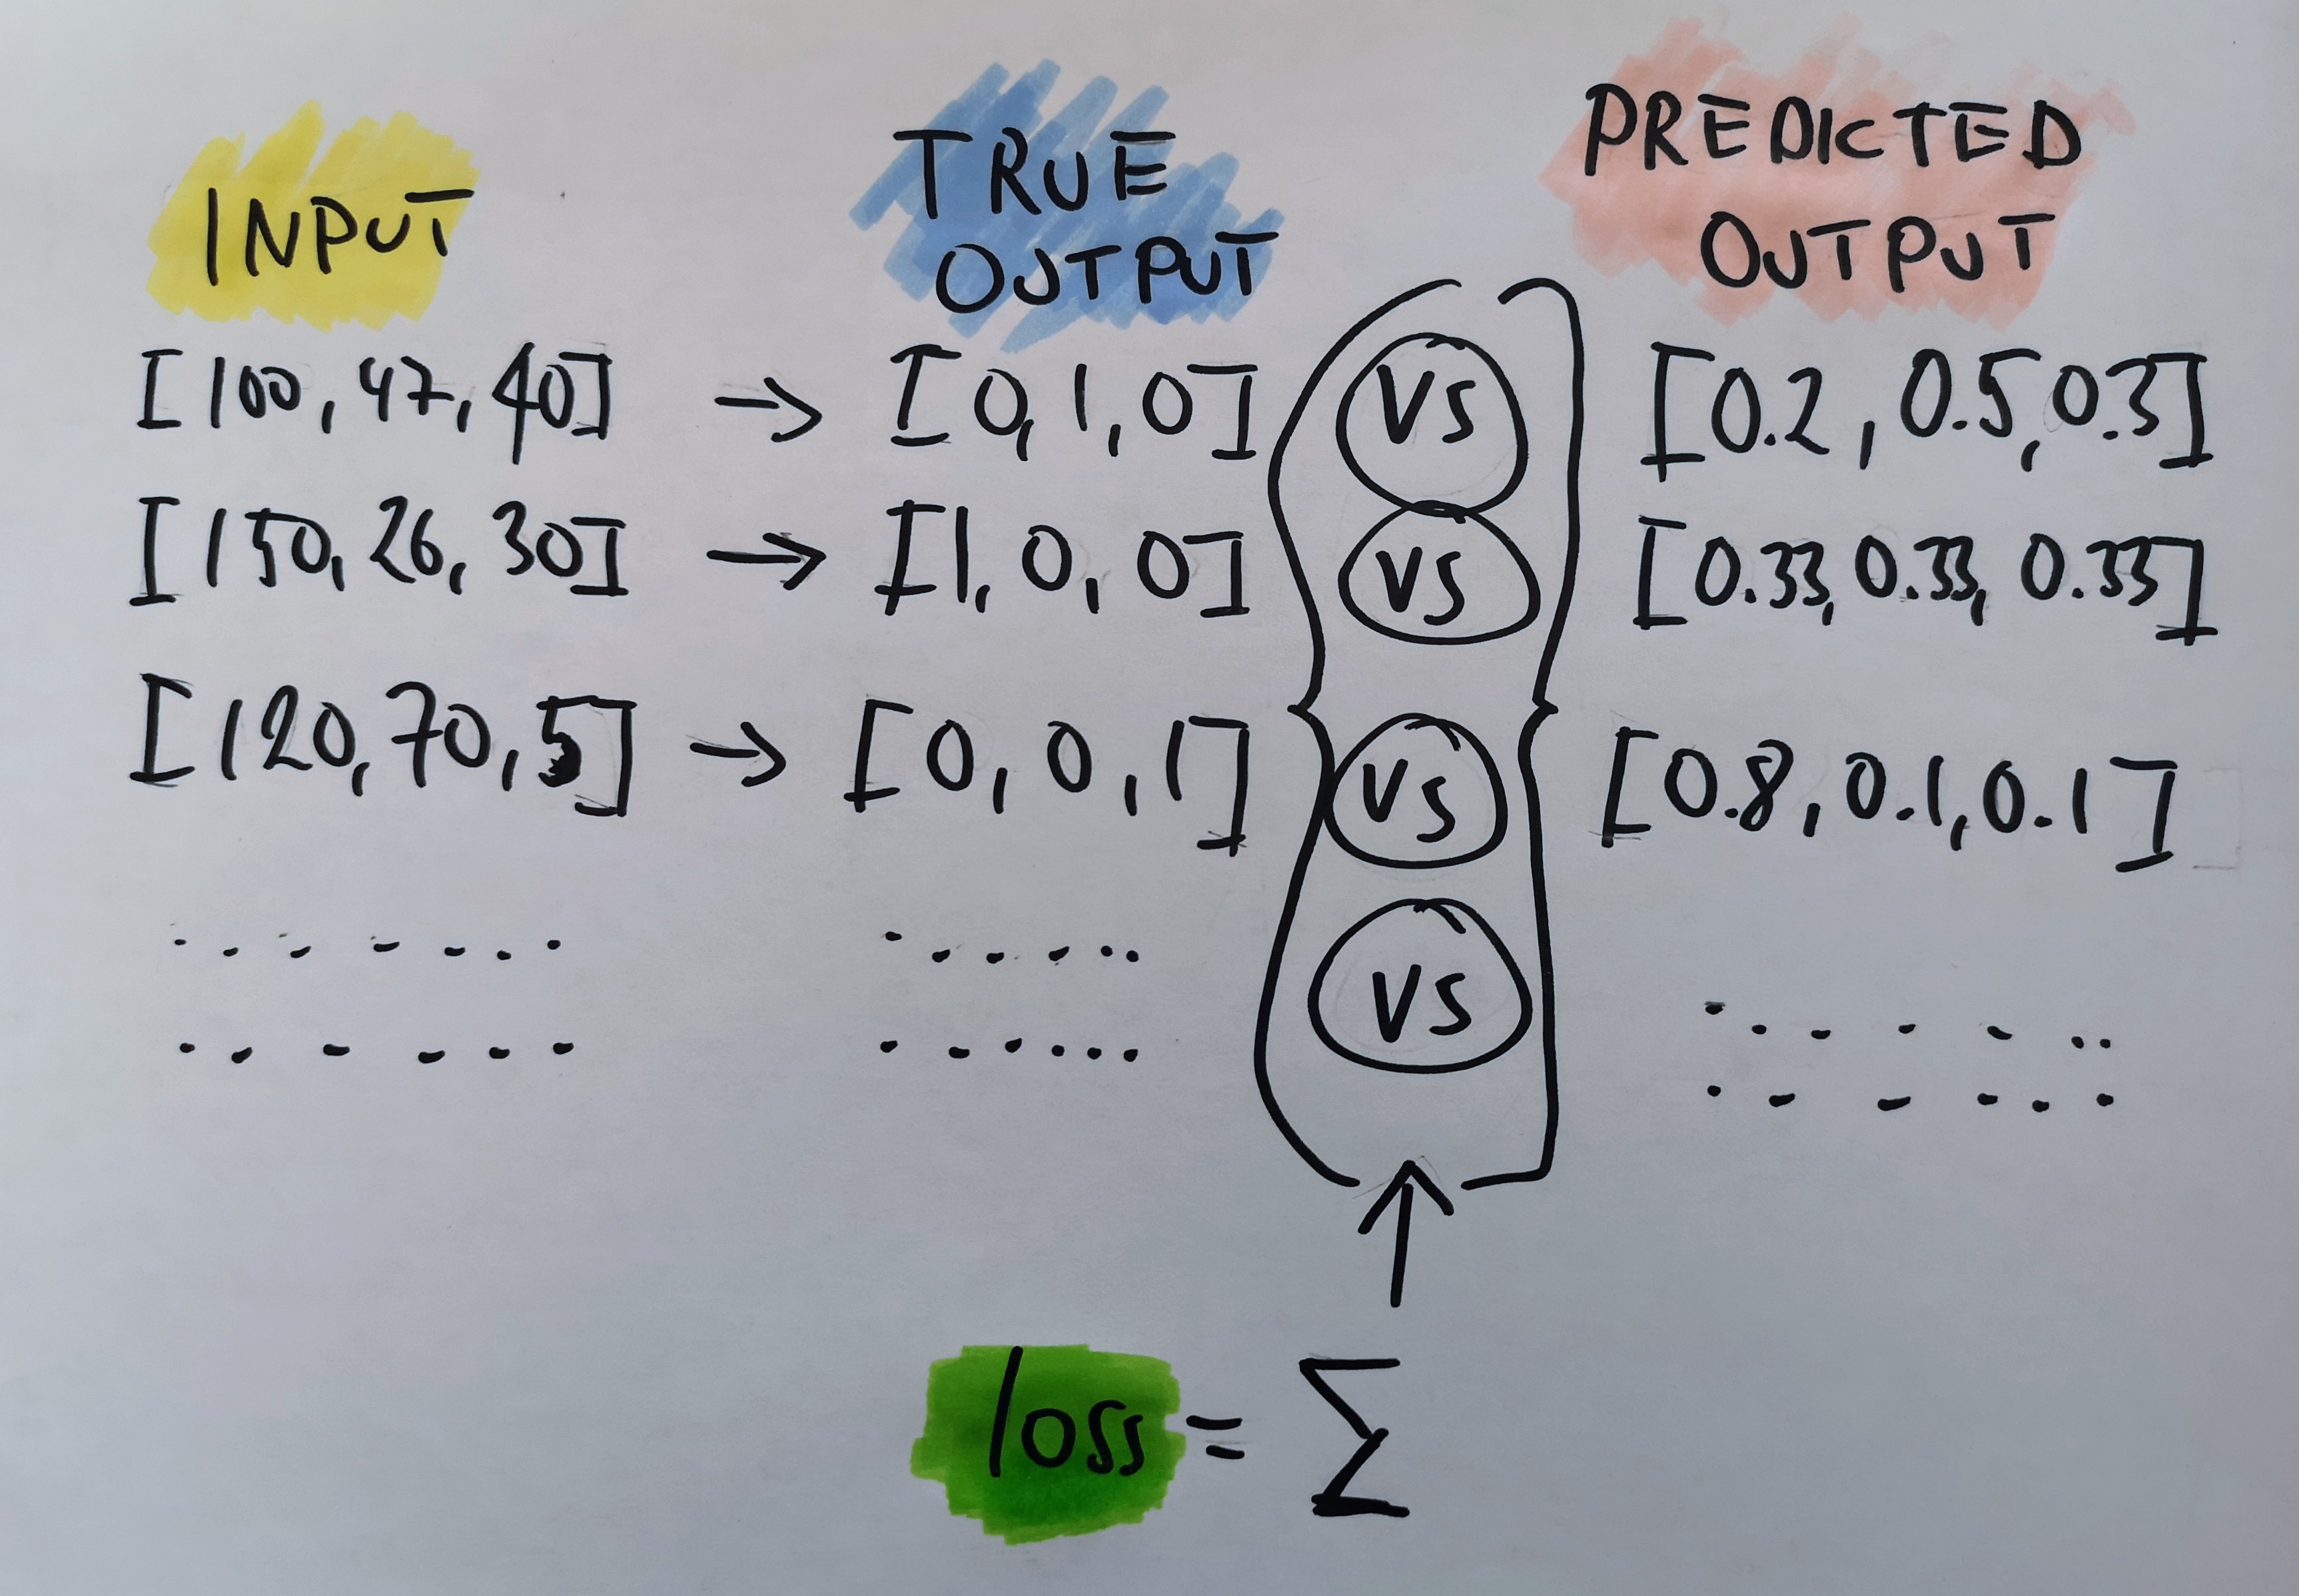 INPUT
TRUE
OUTPUT
PREDICTED
OUTPUT
[100, 47, 40] → [0, 1, 0] VS [0.2, 0.5, 0.3]
[150, 26, 30] → [1, 0, 0] VS [0.33, 0.33, 0.33]
[120, 70, 5] → [0, 0, 1] VS [0.8, 0.1, 0.1]
. . . . . . . . . . . . . VS . . . . . . .
. . . . . . . . . . . . . . . . . .
loss = Σ